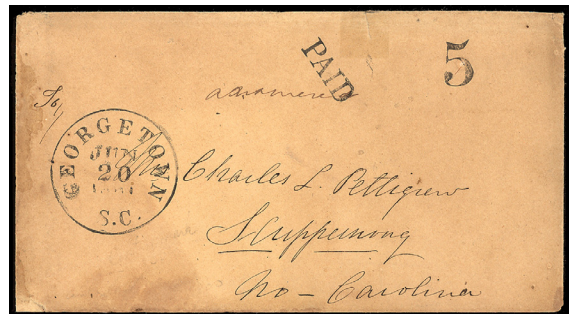 PAID
5
To/
GEORGETOWN
JUN
20
S.C.
Charles L. Pettigrew
Scuppernong
No - Carolina